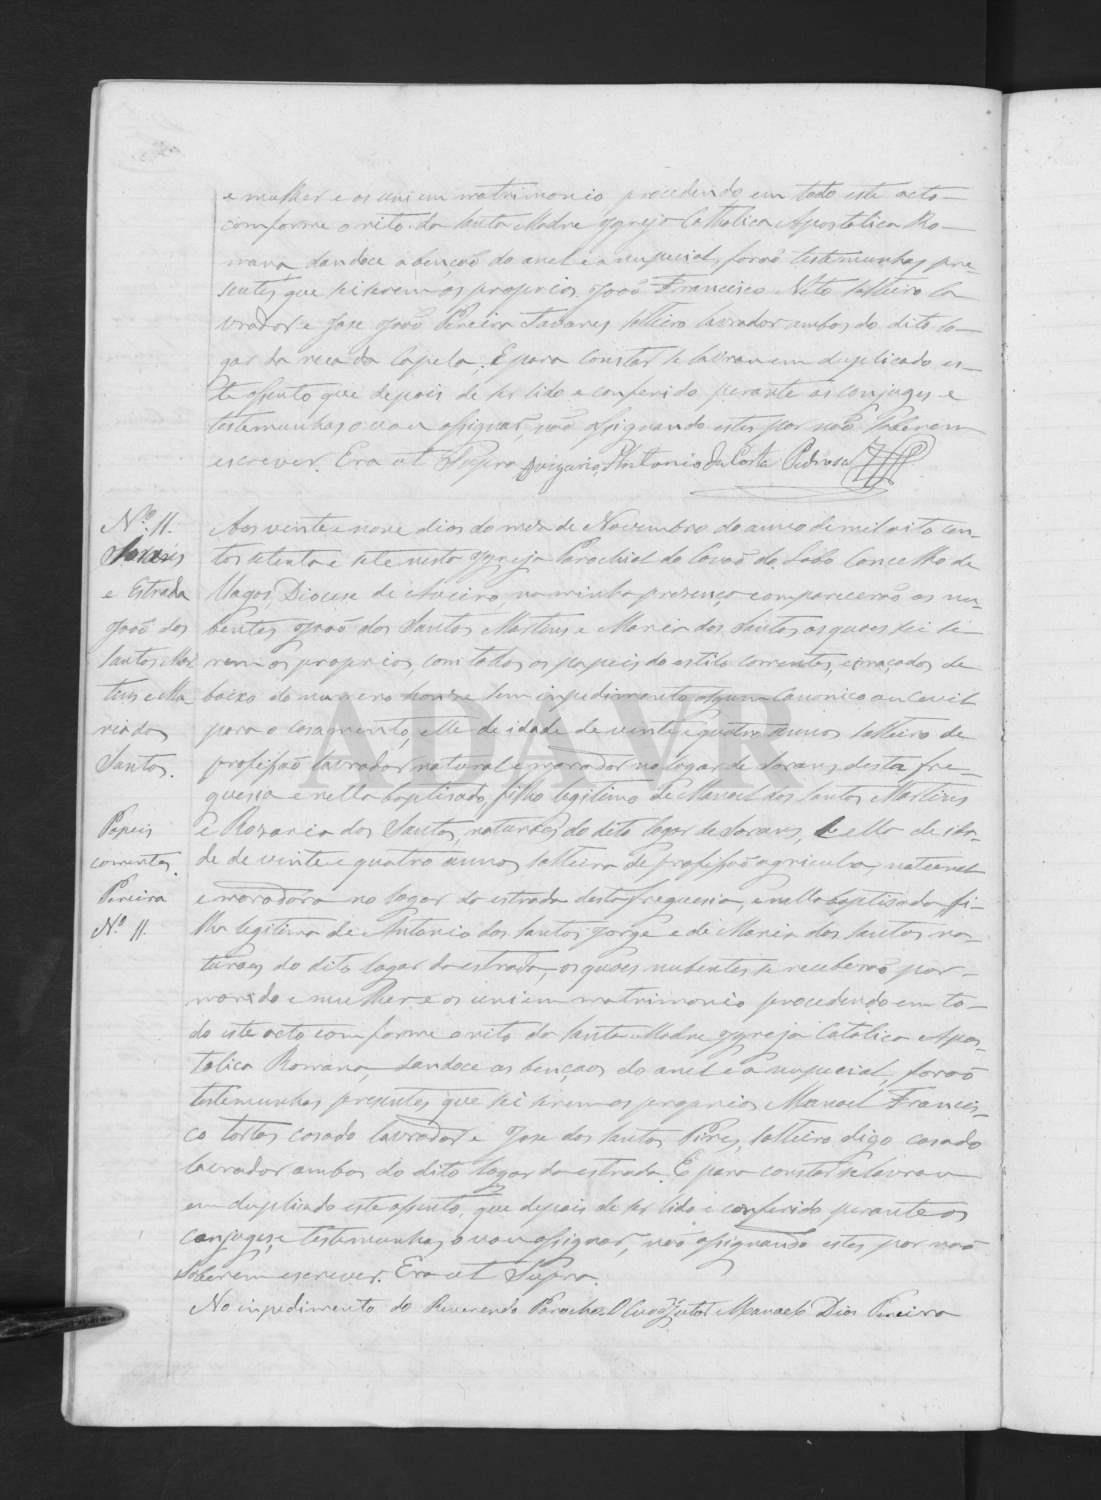 e mulher e os uni em matrimonio procedendo em todo este acto
comforme o rito da Santa Madre Ygreja Catholica Apostolica Ro-
mana, dandoce a bençaõ do anel e a nupecial, foraõ testemunhas pre-
sentes, que sei serem os proprios, Joaõ Francisco Neto solteiro la
vrador e Jose Joaõ Pereira Tavares solteiro lavrador ambos do dito lo-
gar da rua da Capela. E para constar se lavrou em duplicado es-
te assento que depois de ser lido e conferido perante os conjuges e
testemunhas o vou assignar, naõ assignando estes por naõ saberem
escrever. Era ut Supra O Vigario, Antonio da Costa Pedrosa
Nº. 11.
Soraes
e Estrada
Joaõ dos
Santos Mar
tins e Ma
ria dos
Santos.
Papeis
correntes.
Pereira
Nº 11.
Aos vinte e nove dias do mez de Novembro do anno de mil oito cen-
tos setenta e sete nesta Ygreja Parochial de Covaõ do Lobo Concelho de
Vagos, Diocese de Aveiro, na minha presença compareceraõ os nu-
bentes Joaõ dos Santos Martins e Maria dos Santos os quaes sei se-
rem os proprios, com todos os papeis do estilo correntes, e maçados de
baixo do numero honze sem impedimento algum Canonico ou Cevil
para o casamento, elle de idade de vinte e quatro annos solteiro de
profissaõ lavrador natural e morador no logar de Soraes, desta fre-
guesia e nella baptisado, filho legitimo de Manoel dos Santos Martins
e Rozaria dos Santos, naturaes do dito logar de Soraes, e ella de ida-
de de vinte e quatro annos solteira de profissaõ agricula, natural
e moradora no logar da estrada desta freguesia, e nella baptisada, fi-
lha legitima de Antonio dos Santos Jorge e de Maria dos Santos na-
turaes do dito logar da estrada, os quaes nubentes se receberaõ por
marido e mulher e os uni em matrimonio procedendo em to-
do este acto comforme o rito da Santa Madre Ygreja Catolica Apos-
tolica Romana, dandoce as bençaos do anel e a nupecial, foraõ
testemunhas presentes, que sei serem os proprios Manoel Francis-
co tortas casado lavrador e Jose dos Santos Pires, solteiro, digo casado
lavrador ambos do dito logar da estrada. E para constar se lavrou
em duplicado este assento, que depois de ser lido e conferido perante os
conjuges, e testemunhas o vou assignar, naõ assignando estes por naõ
saberem escrever. Era ut Supra.
No inpedimento do Reverendo Parocho. O Cuadjutor Manoel Dias Pereira
ADAVR